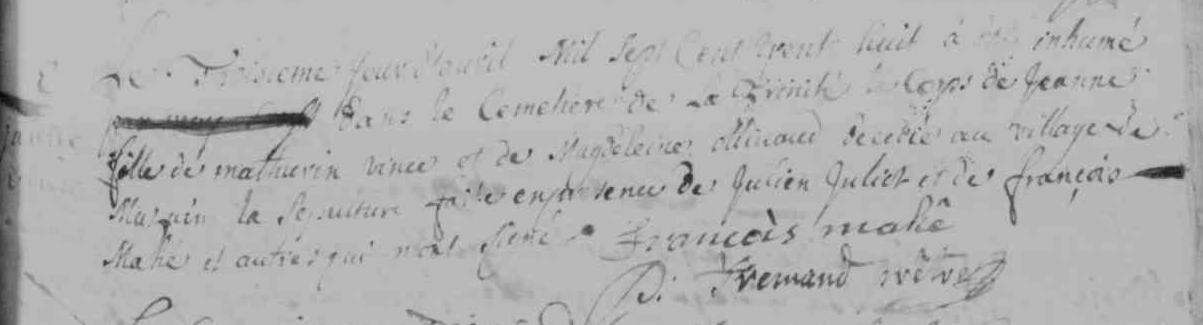 Le Troisieme Jour d'avril Mil Sept Cent trente huit à été inhumé
dans le Cemetiere de La Trinité le Corps de Jeanne
fille de mathurin vince et de Magdeleine decedée au village de
la sepulture faite en presence de Julien Juliot et de françois
Mahé et autres qui n'ont signé françois mahé